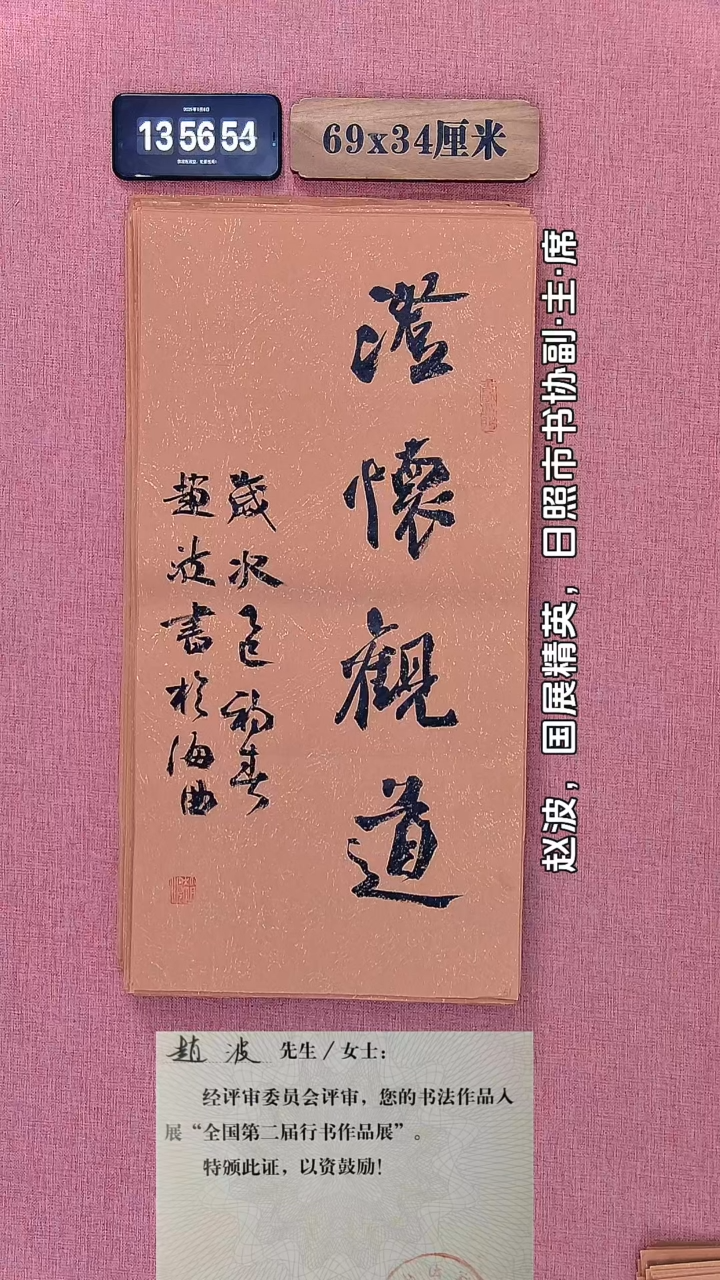 13 56 54
69x34厘米
澄懷觀道
歲次乙巳初春
趙波書於海曲
赵波，国展精英，日照市书协副·主·席
趙波 先生／女士：
经评审委员会评审，您的书法作品入
展“全国第二届行书作品展”。
特颁此证，以资鼓励！